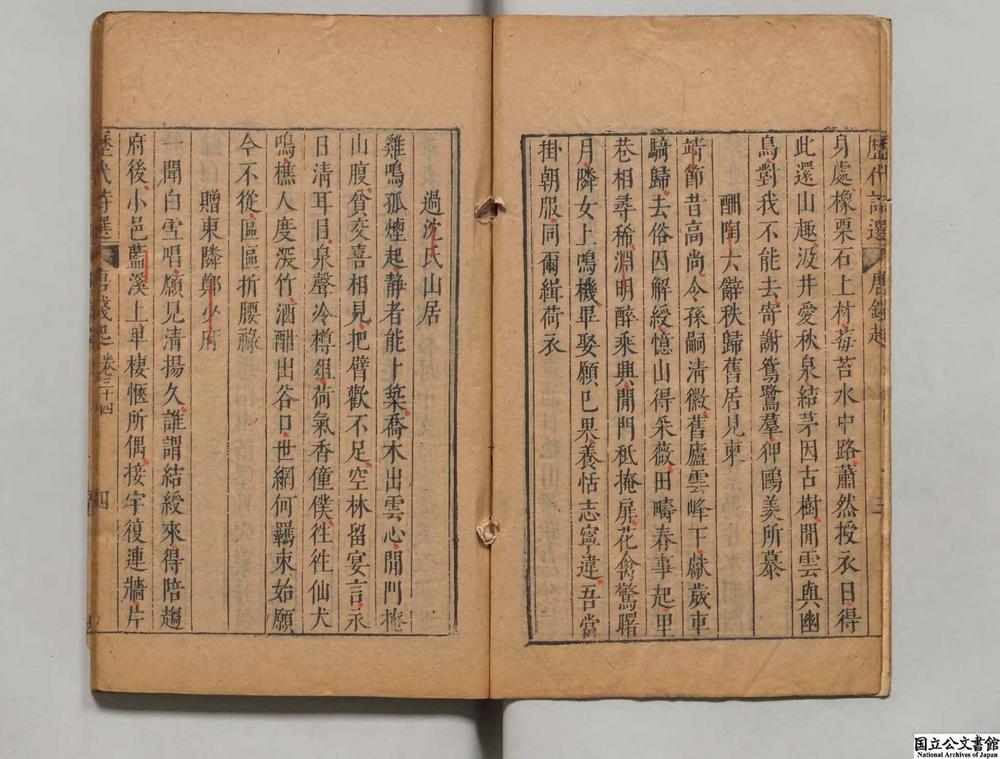 歷代詩選 唐錢起 三
身處橡栗石上村莓苔水中路蕭然授衣日得
此還山趣汲井愛秋泉結茅因古樹閒雲與幽
鳥對我不能去寄謝鴛鷺羣狎鷗羨所慕
酬陶六辭秩歸舊居見柬
靖節昔高尚令孫嗣清徽舊廬雲峰下獻歲車
騎歸去俗因解綬憶山得采薇田疇春事起里
巷相尋稀淵明醉乘興閒門秪掩扉花禽驚曙
月隣女上鳴機畢娶願已果養恬志寧違吾當
掛朝服同爾緝荷衣
過沈氏山居
雞鳴孤煙起靜者能卜築喬木出雲心閒門掩
山腹貧交喜相見把臂歡不足空林留宴言永
日清耳目泉聲冷樽俎荷氣香僮僕徃徃仙犬
鳴樵人度深竹酒酣出谷口世網何羈束始願
今不從區區折腰祿
贈東隣鄭少府
一聞白雪唱願見清揚久誰謂結綬來得陪趨
府後小邑藍溪上卑棲愜所偶接宇復連牆片
歷代詩選 唐錢起 卷三十四 四
国立公文書館
National Archives of Japan